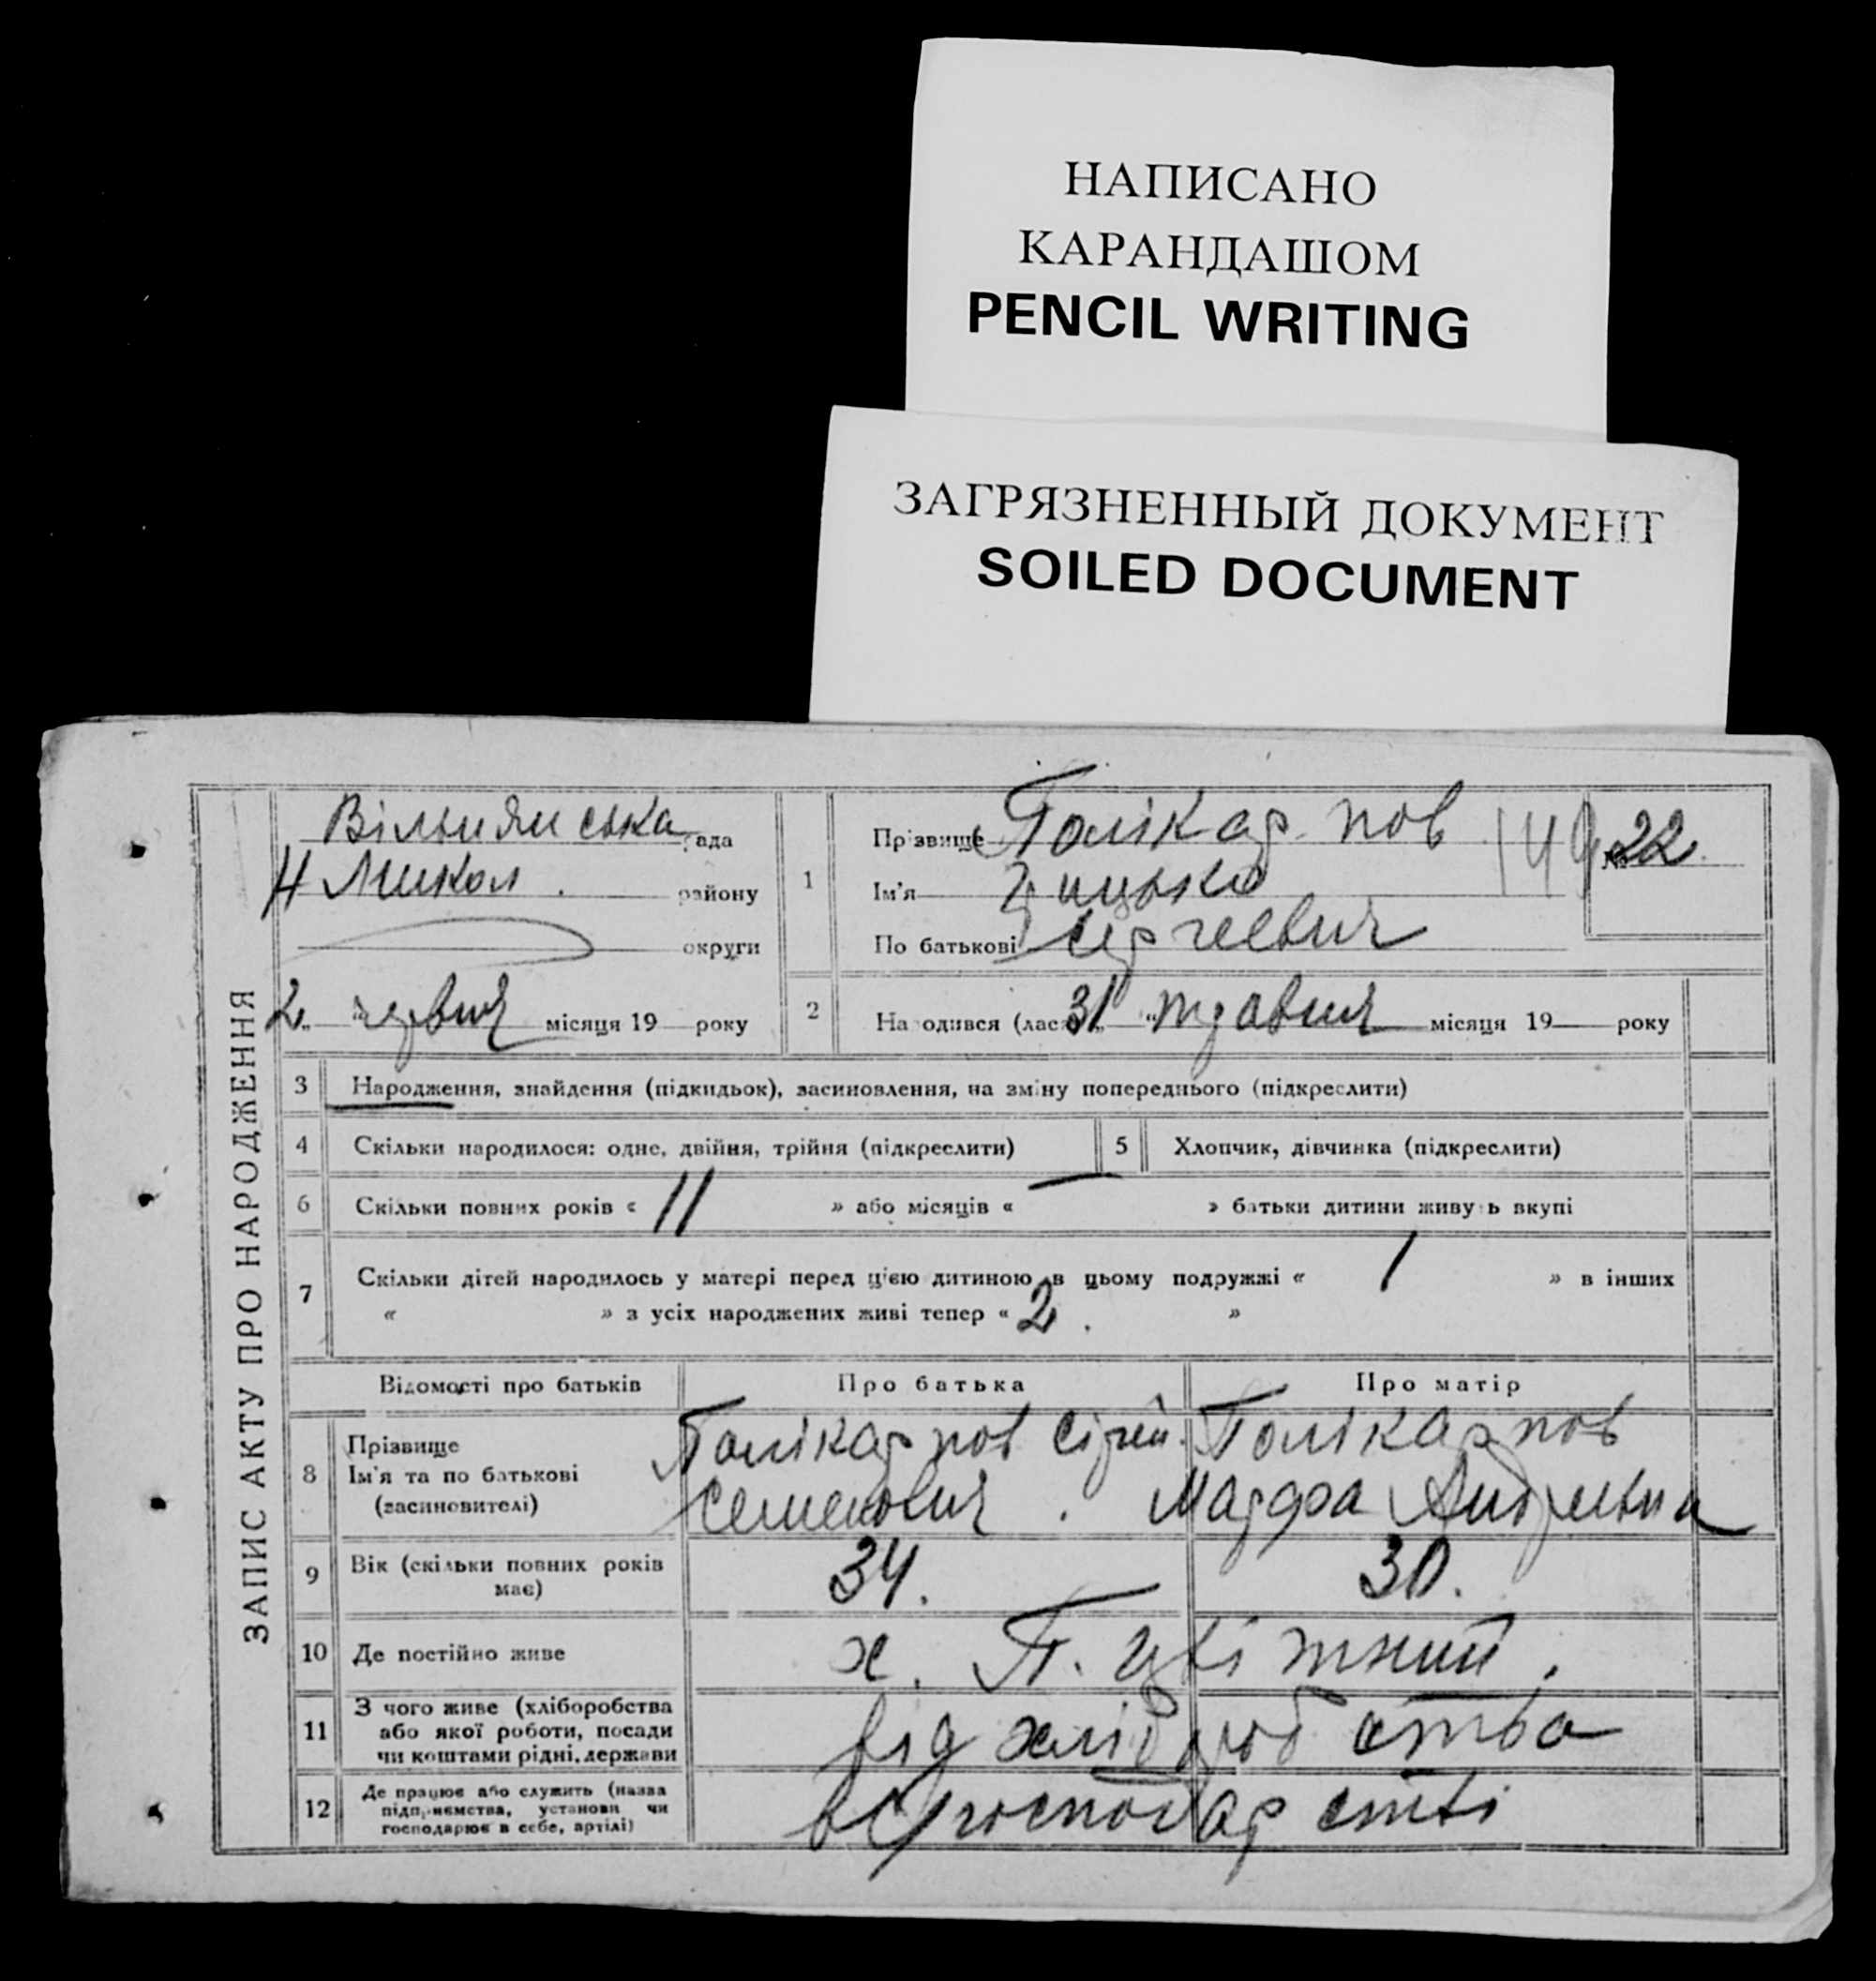 НАПИСАНО
КАРАНДАШОМ
PENCIL WRITING
ЗАГРЯЗНЕННЫЙ ДОКУМЕНТ
SOILED DOCUMENT
ЗАПИС АКТУ ПРО НАРОДЖЕННЯ
рада
Н Микол. району
округи
2 " червня місяця 19 року
1
Прізвище Полікарпов
Ім'я
По батькові Сергеевич
149
№ 22.
2 Народився (лась) 31 " травня місяця 19 року
3 Народження, знайдення (підкидьок), засиновлення, на зміну попереднього (підкреслити)
4 Скільки народилося: одне, двійня, трійня (підкреслити)
5 Хлопчик, дівчинка (підкреслити)
6 Скільки повних років « 11 » або місяців « — » батьки дитини живуть вкупі
7 Скільки дітей народилось у матері перед цією дитиною в цьому подружжі « 1 » в інших
« » з усіх народжених живі тепер « 2. »
Відомості про батьків Про батька Про матір
8 Прізвище
Ім'я та по батькові
(засиновителі)
Полікарпов Сергій
Семенович.
Полікарпов
Марфа Андреевна
9 Вік (скільки повних років
має)
34. 30.
10 Де постійно живе х. П. Цвітний.
11 З чого живе (хліборобства
або якої роботи, посади
чи коштами рідні, держави
від хліборобства
12 Де працює або служить (назва
підприємства, установи чи
господарює в себе, артілі)
в с/господарстві